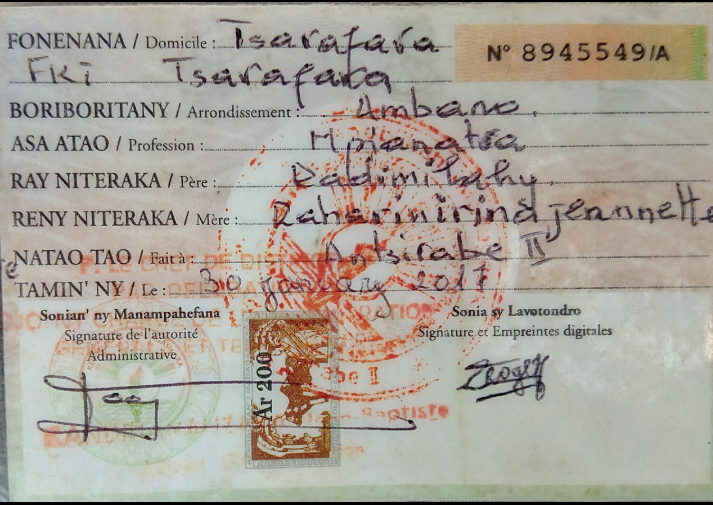 FONENANA / Domicile : Tsarafara
N° 8945549/A
FKT Tsarafara
BORIBORITANY / Arrondissement : Ambano.
ASA ATAO / Profession : Mpianatra
RAY NITERAKA / Père : Radimilahy
RENY NITERAKA / Mère : Raharinirina jeannette
NATAO TAO / Fait à : Antsirabe II
TAMIN' NY / Le : 30 janvary 2017
Sonian' ny Manampahefana
Signature de l'autorité
Administrative
Sonia sy Lavotondro
Signature et Empreintes digitales
Ar 200